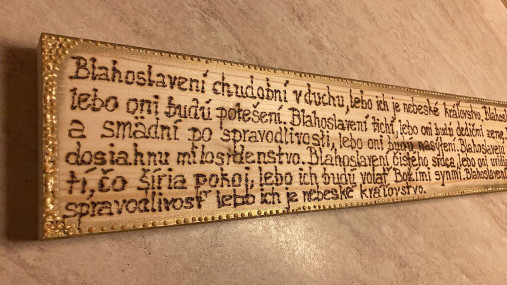 Blahoslavení chudobní v duchu, lebo ich je nebeské kráľovstvo.
lebo oni budú potešení. Blahoslavení tichí, lebo oni budú dediční zeme.
a smädní po spravodlivosti, lebo oni budú nasýtení. Blahoslavení
dosiahnu milosrdenstvo. Blahoslavení čistého srdca, lebo oni
tí, čo šíria pokoj, lebo ich budú volať Božími synmi. Blahoslavení
spravodlivosť lebo ich je nebeské kráľovstvo.